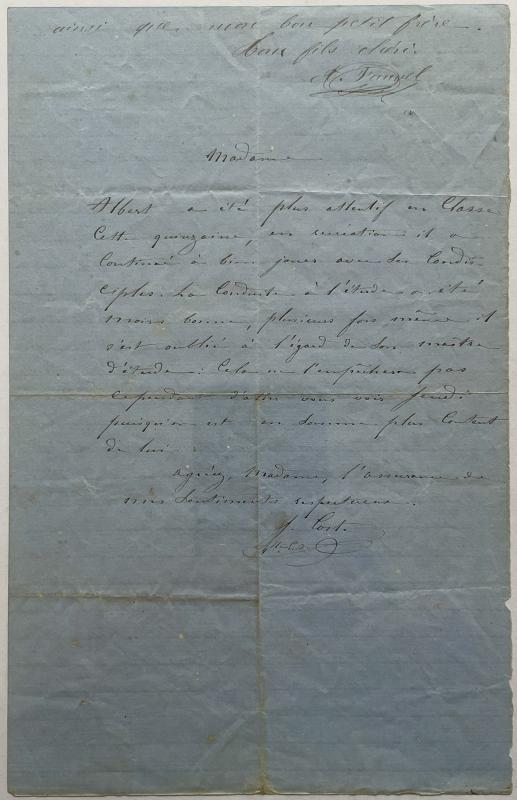 ainsi que mon bon petit frère.
Ton fils chéri
A.
Madame
Albert a été plus attentif en Classe
Cette quinzaine, en recreation il a
Continué à bien jouer avec ses Condis
ciples. La Conduite à l'étude a été
moins bonne, plusieurs fois même il
s'est oublié à l'égard de son maitre
d'étude. Cela ne l'empêchera pas
cependant d'aller vous voir Jeudi
puisqu'on est en Somme plus Content
de lui.
Agréez, Madame, l'assurance de
mes Sentiments respectueux.
J. Coste